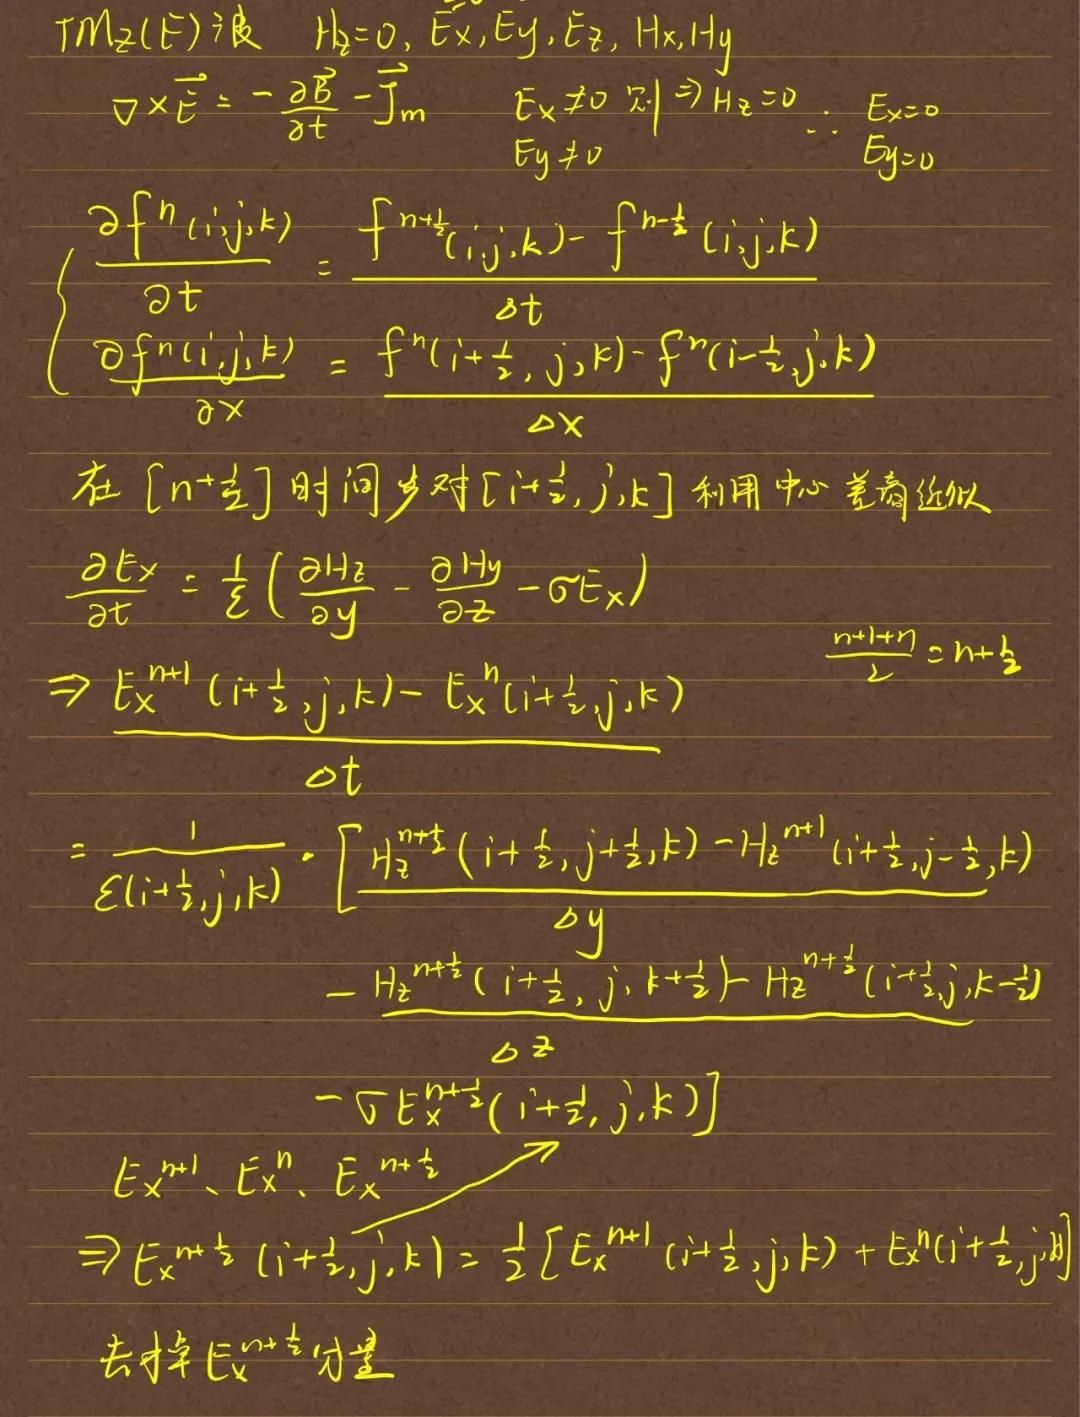 TMz(E)波 Hz=0, Ex, Ey, Ez, Hx, Hy
∇×E⃗ = -∂B⃗/∂t - J⃗m Ex≠0 则 ⇒ Hz=0 ∴ Ex=0
Ey≠0 Ey=0
∂fⁿ(i,j,k)/∂t = [f^{n+1/2}(i,j,k) - f^{n-1/2}(i,j,k)]/Δt
∂fⁿ(i,j,k)/∂x = [fⁿ(i+1/2,j,k) - fⁿ(i-1/2,j,k)]/Δx
在[n+1/2]时间步对[i+1/2,j,k]利用中心差商近似
∂Ex/∂t = 1/ε(∂Hz/∂y - ∂Hy/∂z - σEx)
(n+1+n)/2 = n+1/2
⇒ [Ex^{n+1}(i+1/2,j,k) - Ex^{n}(i+1/2,j,k)]/Δt
= 1/ε(i+1/2,j,k) · [ (Hz^{n+1/2}(i+1/2,j+1/2,k) - Hz^{n+1}(i+1/2,j-1/2,k))/Δy
- (Hz^{n+1/2}(i+1/2,j,k+1/2) - Hz^{n+1/2}(i+1/2,j,k-1/2))/Δz
- σEx^{n+1/2}(i+1/2,j,k)]
Ex^{n+1}、Ex^{n}、Ex^{n+1/2}
⇒ Ex^{n+1/2}(i+1/2,j,k) = 1/2[Ex^{n+1}(i+1/2,j,k) + Ex^{n}(i+1/2,j,k)]
去掉Ex^{n+1/2}分量